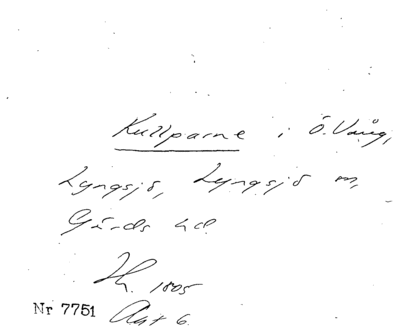 Kullparne i Ö. Vång,
Lyngsjö, Lyngsjö m,
Gärds hd
1805
Nr 7751 Akt 6.